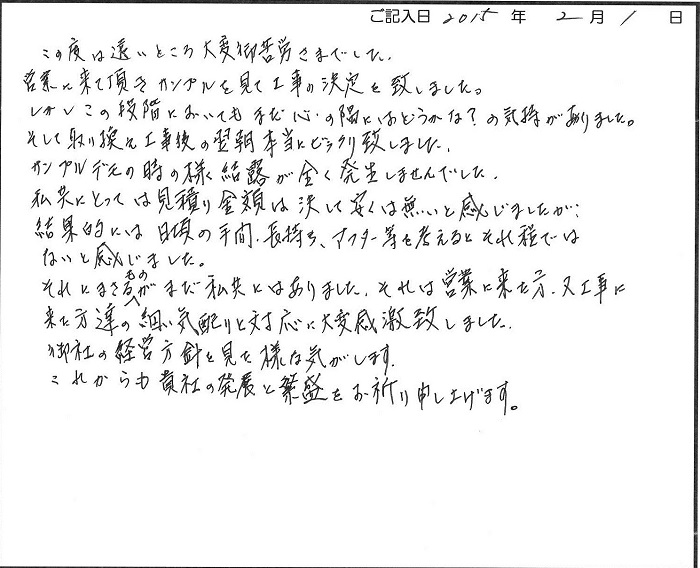 ご記入日 2015 年 2 月 1 日
この度は遠いところ大変御苦労さまでした。
営業に来て頂きサンプルを見て工事の決定を致しました。
しかしこの段階においてもまだ心の隅にはどうかな?の気持がありました。
そして取り換え工事後の翌朝本当にビックリ致しました。
サンプルデモの時の様に結露が全く発生しませんでした。
私共にとっては見積り金額は決して安くは無いと感じましたが、
結果的には日頃の手間、長持ち、アフター等を考えるとそれ程では
ないと感じました。
それにまさるものがまだ私共にはありました。それは営業に来た方、又工事に
来た方達の細い気配りと対応に大変感激致しました。
御社の経営方針を見た様な気がします。
これからも貴社の発展と繁盛をお祈り申し上げます。